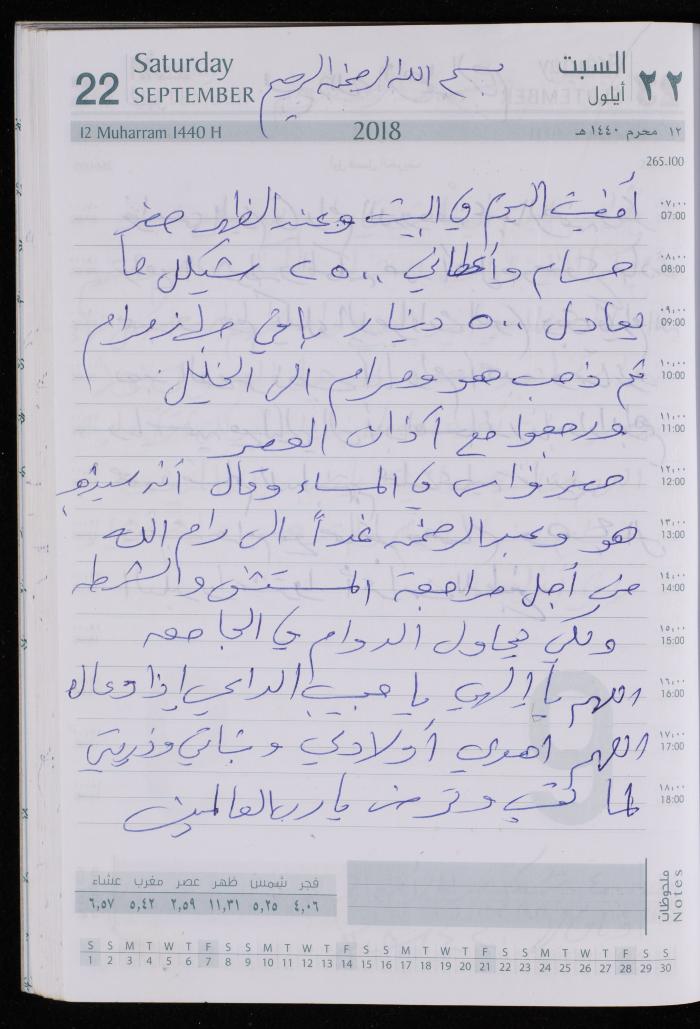 Saturday
22 SEPTEMBER
بسم الله الرحمن الرحيم
السبت
٢٢ أيلول
12 Muharram 1440 H
2018
١٢ محرم ١٤٤٠ هـ
265.100
أفقت اليوم في البيت وعند الظهر حضر
٠٧,٠٠
07:00
حسام وأعطاني ٢٥٠٠ شيكل ما
٠٨,٠٠
08:00
يعادل ٥٠٠ دينار باقي مرام
٠٩,٠٠
09:00
ثم ذهب هو ومرام الى الخليل
١٠,٠٠
10:00
ورجعوا مع آذان العصر
١١,٠٠
11:00
حضر فؤاس في المساء وقال أنه
١٢,٠٠
12:00
هو وعبد الرحمن غداً الى رام الله
١٣,٠٠
13:00
من أجل مراجعة المستشفى والشرطه
١٤,٠٠
14:00
ولكي يحاول الدوام في الجامعه
١٥,٠٠
15:00
اللهم يا إلهي يا مجيب الداعي إذا دعاك
١٦,٠٠
16:00
اللهم اهدي أولادي وبناتي وذريتي
١٧,٠٠
17:00
لما تحب وترضى يا رب العالمين
١٨,٠٠
18:00
9
فجر شمس ظهر عصر مغرب عشاء
٤,٠٦ ٥,٢٥ ١١,٣١ ٢,٥٩ ٥,٤٢ ٦,٥٧
ملحوظات
Notes
S S M T W T F S S M T W T F S S M T W T F S S M T W T F S S
1 2 3 4 5 6 7 8 9 10 11 12 13 14 15 16 17 18 19 20 21 22 23 24 25 26 27 28 29 30